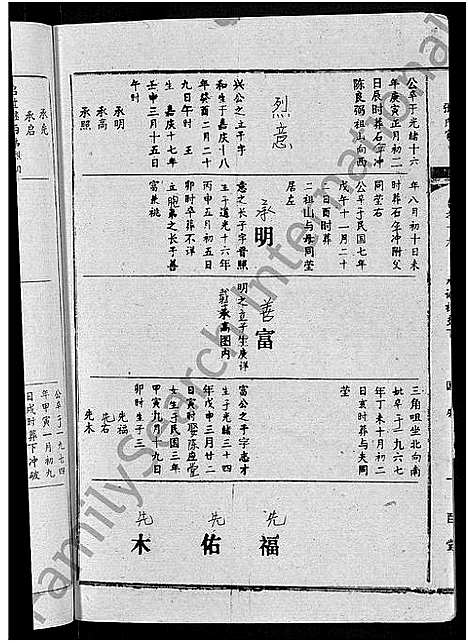 公卒于光緒十六
年庚寅正月初二
日辰時葬石牛冲
陈良弼祖山向西
烈意
兴公之立子字
和生于嘉庆十八
年癸酉二月二十
九日午时 王
生 嘉庆十七年
壬申三月十五日
午时
承明
承高
承照
年八月初十日未
时葬石牛冲附父
同茔右
公卒于民国七年
戊午十一月二十
二日酉时葬
二祖山与母同茔
居左
承明
意之长子字晋照
生于道光十六年
丙申五月初五日
卯时卒葬不详
立胞弟之长子善
富兼祧
善富
明之立子生庚详
葬承高图内
三角咀坐北向南
妣卒丁一九六七
年丁未十月初二
日亥时葬与夫同
茔
富公之子字忠才
生于光緒三十四
年戊申三月廿二
日寅时娶陈应堂
女生于民国三年
甲寅九月十九日
卯时生子三
先福
先右
先木
先福
先佑
先木
承先
承启
公卒丁一九七四
年甲寅一月初九
日戌时葬下冲破
FamilySearch International